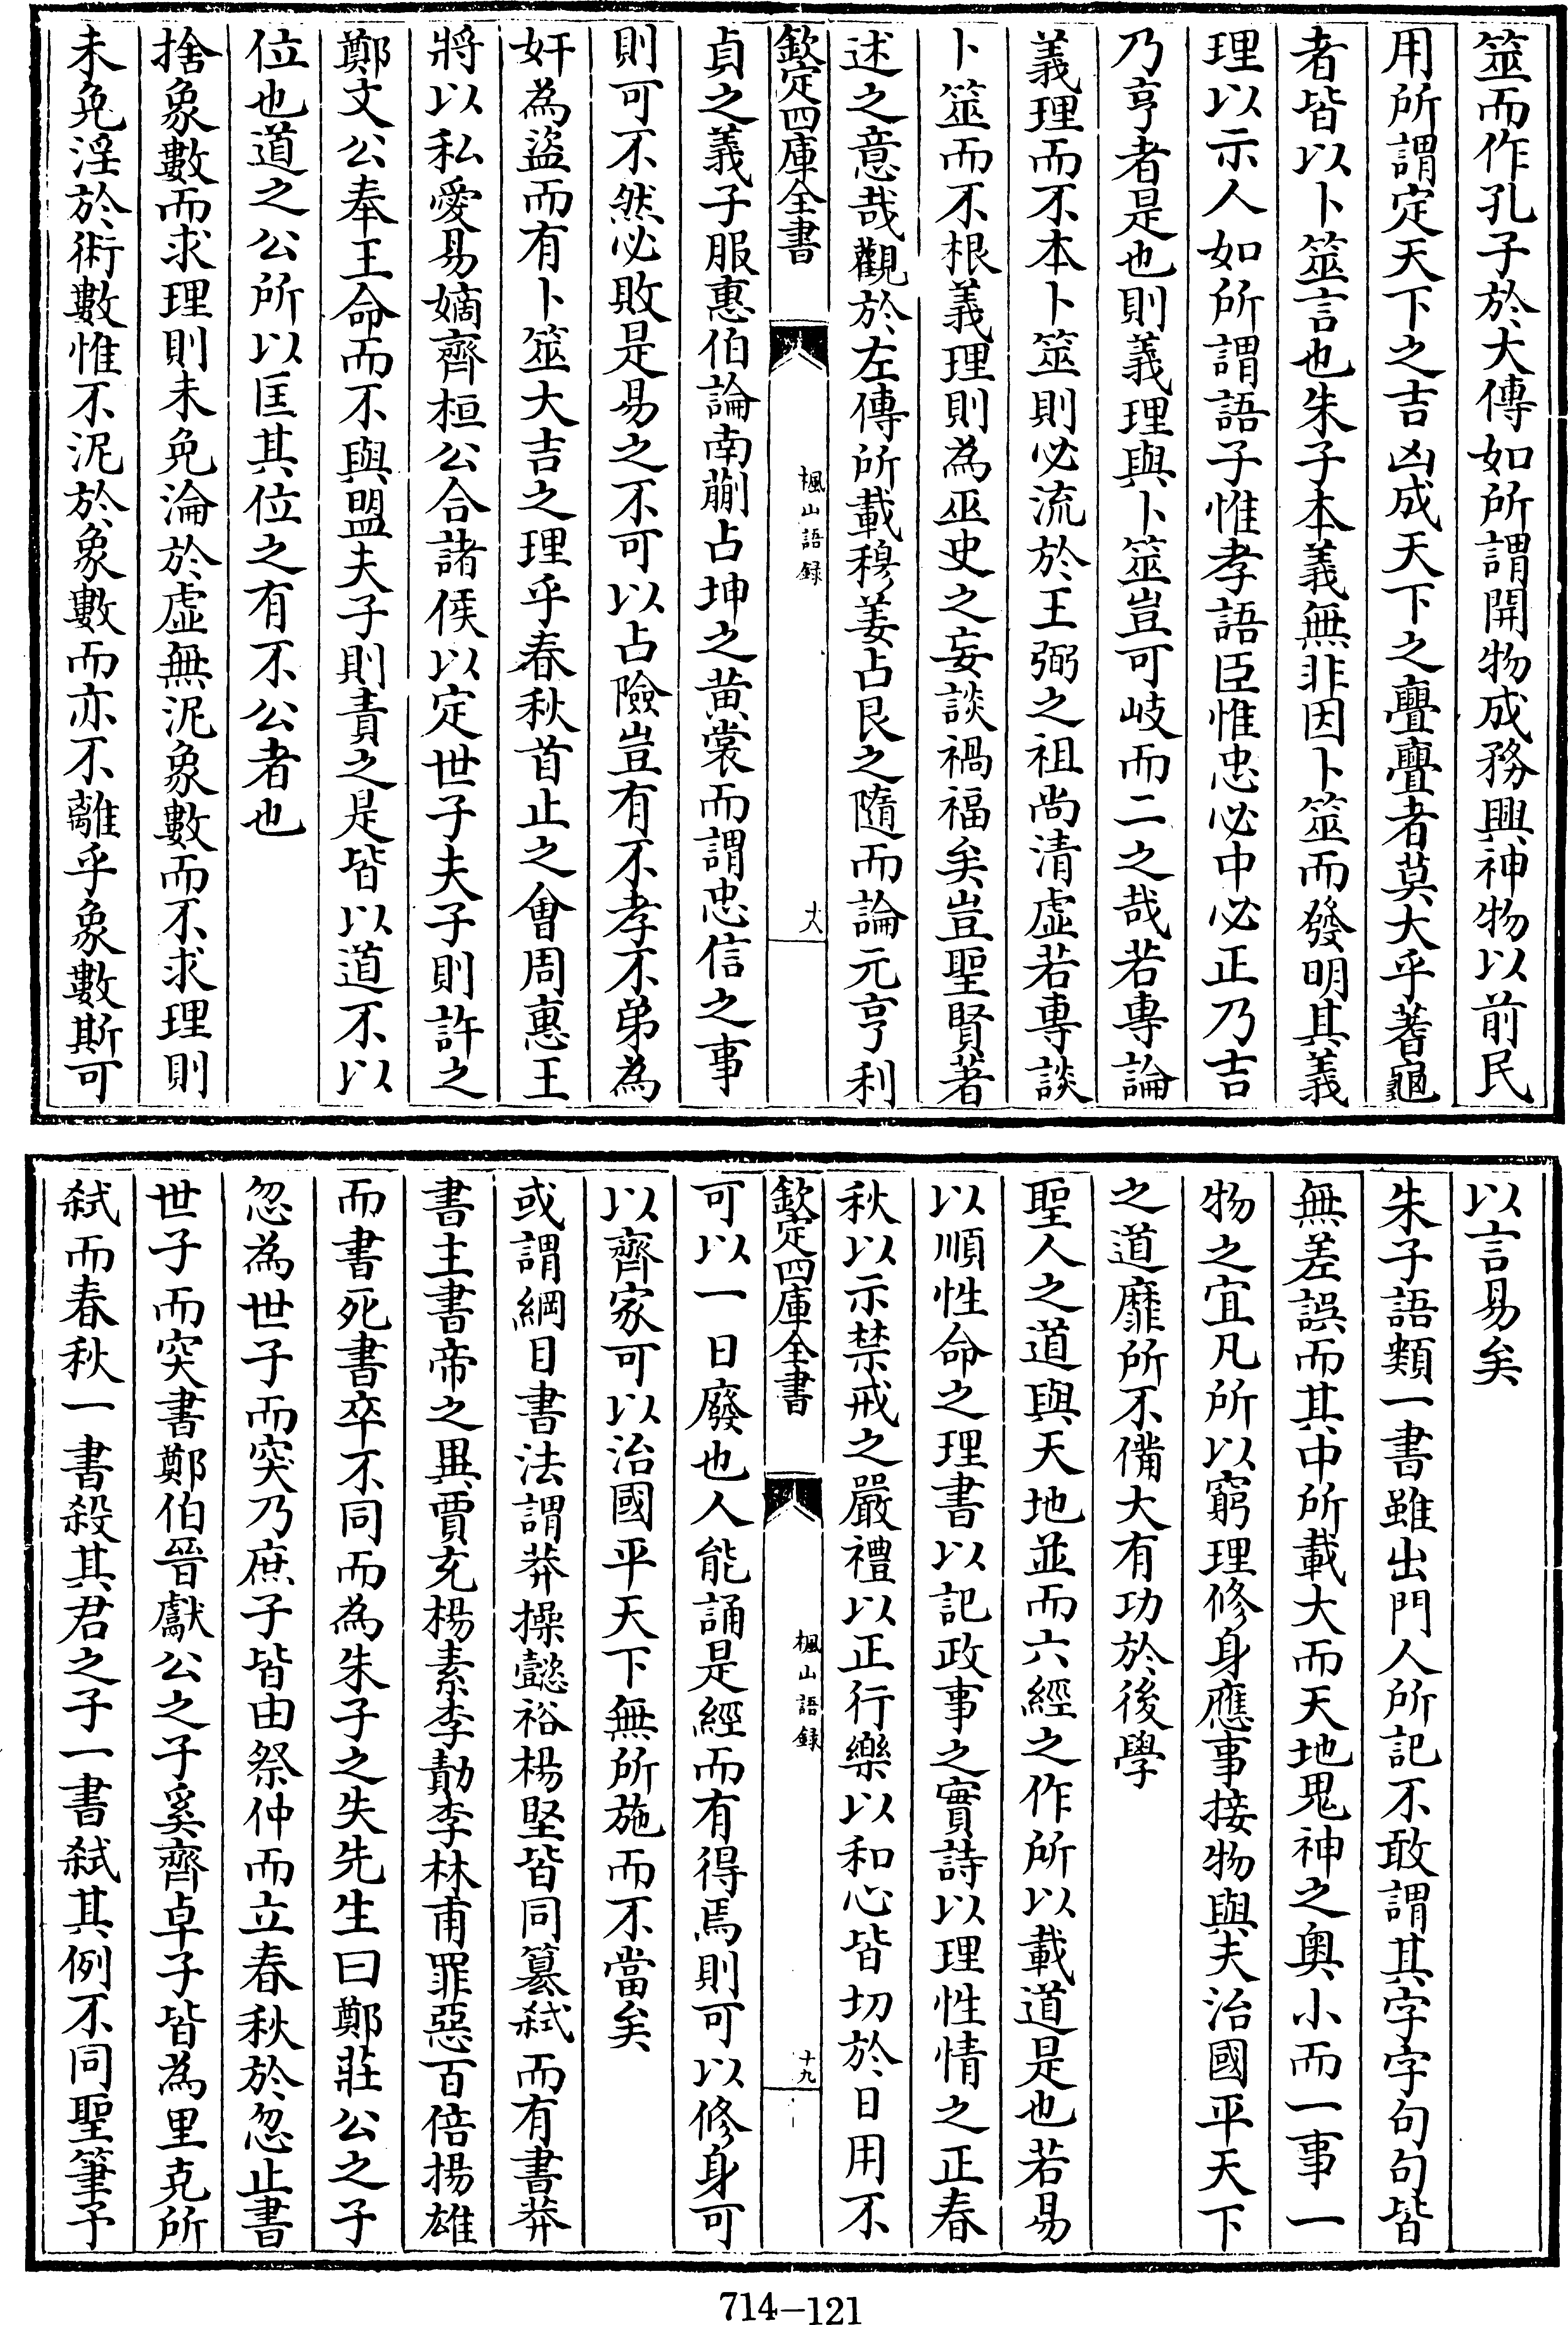 筮而作孔子於大傳如所謂開物成務興神物以前民
用所謂定天下之吉凶成天下之亹亹者莫大乎蓍龜
者皆以卜筮言也朱子本義無非因卜筮而發明其義
理以示人如所謂語子惟孝語臣惟忠必中必正乃吉
乃亨者是也則義理與卜筮豈可岐而二之哉若專論
義理而不本卜筮則必流於王弼之祖尚清虛若專談
卜筮而不根義理則為巫史之妄談禍福矣豈聖賢著
述之意哉觀於左傳所載穆姜占艮之隨而論元亨利
欽定四庫全書
楓山語録
十八
貞之義子服惠伯論南蒯占坤之黄裳而謂忠信之事
則可不然必敗是易之不可以占險豈有不孝不弟為
奸為盜而有卜筮大吉之理乎春秋首止之會周惠王
將以私愛易嫡齊桓公合諸侯以定世子夫子則許之
鄭文公奉王命而不與盟夫子則責之是皆以道不以
位也道之公所以匡其位之有不公者也
捨象數而求理則未免淪於虛無泥象數而不求理則
未免淫於術數惟不泥於象數而亦不離乎象數斯可
以言易矣
朱子語類一書雖出門人所記不敢謂其字字句句皆
無差誤而其中所載大而天地鬼神之奧小而一事一
物之宜凡所以窮理修身應事接物與夫治國平天下
之道靡所不備大有功於後學
聖人之道與天地並而六經之作所以載道是也若易
以順性命之理書以記政事之實詩以理性情之正春
秋以示禁戒之嚴禮以正行樂以和心皆切於日用不
欽定四庫全書
楓山語録
十九
可以一日廢也人能誦是經而有得焉則可以修身可
以齊家可以治國平天下無所施而不當矣
或謂綱目書法謂莽操懿裕楊堅皆同篡弒而有書莽
書主書帝之異賈充楊素李勣李林甫罪惡百倍揚雄
而書死書卒不同而為朱子之失先生曰鄭莊公之子
忽為世子而突乃庶子皆由祭仲而立春秋於忽止書
世子而突書鄭伯晉獻公之子奚齊卓子皆為里克所
弒而春秋一書殺其君之子一書弒其例不同聖筆予
714-121